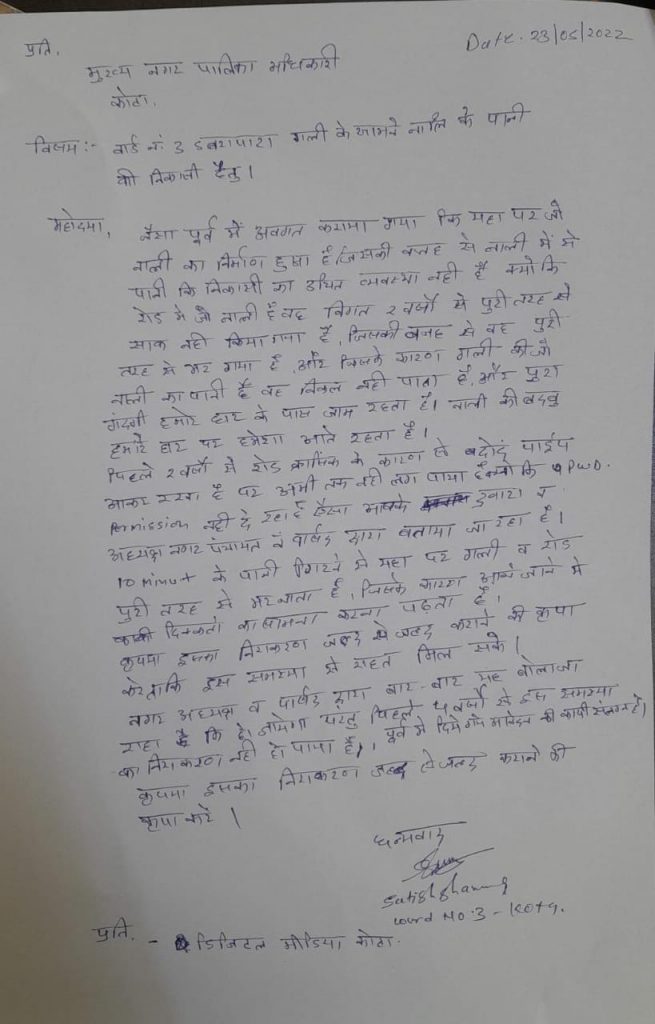 Date. 23/05/2022
प्रति,
मुख्य नगर पालिका अधिकारी
कोटा.
विषय :- वार्ड नं. 3 डबरापारा गली के सामने नालि के पानी
की निकासी हेतु।
महोदया,
जैसा पूर्व में अवगत कराया गया कि यहा पर जो
नाली का निर्माण हुआ है जिसकी वजह से नाली में से
पानी कि निकासी का उचित व्यवस्था नही है क्योकि
रोड मे जो नाली है वह विगत 2 वर्षो से पुरी तरह से
साफ नही किया गया है, जिसकी वजह से वह पुरी
तरह से भर गया है और जिसके कारण गली की जो
नाली का पानी है वह निकल नही पाता है, और पुरा
गंदगी हमारे घर के पास जाम रहता है। नाली की बदबु
हमारे घर पर हमेशा आते रहता है।
पिछले 2 वर्षो से रोड क्रासिंग के कारण पाईप
आकर रखा है पर अभी तक नही लग पाया है क्यो कि PWD.
Permission नही दे रहा है ऐसा आपके द्वारा व
अध्यक्ष नगर पंचायत व पार्षद द्वारा बताया जा रहा है।
10 minut के पानी गिरने से यहा पर गली व रोड
पुरी तरह से भर जाता है, जिसके कारण आने जाने मे
काफी दिक्कतो का सामना करना पड़ता है।
कृपया इसका निराकरण जल्द से जल्द कराने की कृपा
करे ताकि इस समस्या से राहत मिल सके।
नगर अध्यक्ष व पार्षद द्वारा बार-बार यह बोला जा
रहा है कि हो जायेगा परंतु पिछले 4 वर्षो से इस समस्या
का निराकरण नही हो पाया है। पूर्व मे दिये गये आवेदन की कापी संलग्न है।
कृपया इसका निराकरण जल्द से जल्द कराने की
कृपा करे।
धन्यवाद
Satish
ward No: 3 - Kota.
प्रति. - डिजिटल मीडिया कोटा.